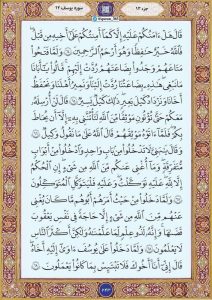 جزء ۱۳
سوره یوسف ۱۲
قَالَ هَلْ ءَامَنُكُمْ عَلَيْهِ إِلَّا كَمَآ أَمِنتُكُمْ عَلَىٰٓ أَخِيهِ مِن قَبْلُ
فَٱللَّهُ خَيْرٌ حَٰفِظًا وَهُوَ أَرْحَمُ ٱلرَّٰحِمِينَ ۝٦٤ وَلَمَّا فَتَحُوا۟
مَتَٰعَهُمْ وَجَدُوا۟ بِضَٰعَتَهُمْ رُدَّتْ إِلَيْهِمْ قَالُوا۟ يَٰٓأَبَانَا
مَا نَبْغِى هَٰذِهِۦ بِضَٰعَتُنَا رُدَّتْ إِلَيْنَا وَنَمِيرُ أَهْلَنَا وَنَحْفَظُ
أَخَانَا وَنَزْدَادُ كَيْلَ بَعِيرٍ ذَٰلِكَ كَيْلٌ يَسِيرٌ ۝٦٥ قَالَ لَنْ أُرْسِلَهُۥ
مَعَكُمْ حَتَّىٰ تُؤْتُونِ مَوْثِقًا مِّنَ ٱللَّهِ لَتَأْتُنَّنِى بِهِۦٓ إِلَّآ أَن يُحَاطَ
بِكُمْ فَلَمَّآ ءَاتَوْهُ مَوْثِقَهُمْ قَالَ ٱللَّهُ عَلَىٰ مَا نَقُولُ وَكِيلٌ ۝٦٦
وَقَالَ يَٰبَنِىَّ لَا تَدْخُلُوا۟ مِنۢ بَابٍ وَٰحِدٍ وَٱدْخُلُوا۟ مِنْ أَبْوَٰبٍ
مُّتَفَرِّقَةٍ وَمَآ أُغْنِى عَنكُم مِّنَ ٱللَّهِ مِن شَىْءٍ إِنِ ٱلْحُكْمُ
إِلَّا لِلَّهِ عَلَيْهِ تَوَكَّلْتُ وَعَلَيْهِ فَلْيَتَوَكَّلِ ٱلْمُتَوَكِّلُونَ ۝٦٧
وَلَمَّا دَخَلُوا۟ مِنْ حَيْثُ أَمَرَهُمْ أَبُوهُم مَّا كَانَ يُغْنِى
عَنْهُم مِّنَ ٱللَّهِ مِن شَىْءٍ إِلَّا حَاجَةً فِى نَفْسِ يَعْقُوبَ
قَضَىٰهَا وَإِنَّهُۥ لَذُو عِلْمٍ لِّمَا عَلَّمْنَٰهُ وَلَٰكِنَّ أَكْثَرَ ٱلنَّاسِ
لَا يَعْلَمُونَ ۝٦٨ وَلَمَّا دَخَلُوا۟ عَلَىٰ يُوسُفَ ءَاوَىٰٓ إِلَيْهِ أَخَاهُ
قَالَ إِنِّىٓ أَنَا۠ أَخُوكَ فَلَا تَبْتَئِسْ بِمَا كَانُوا۟ يَعْمَلُونَ ۝٦٩